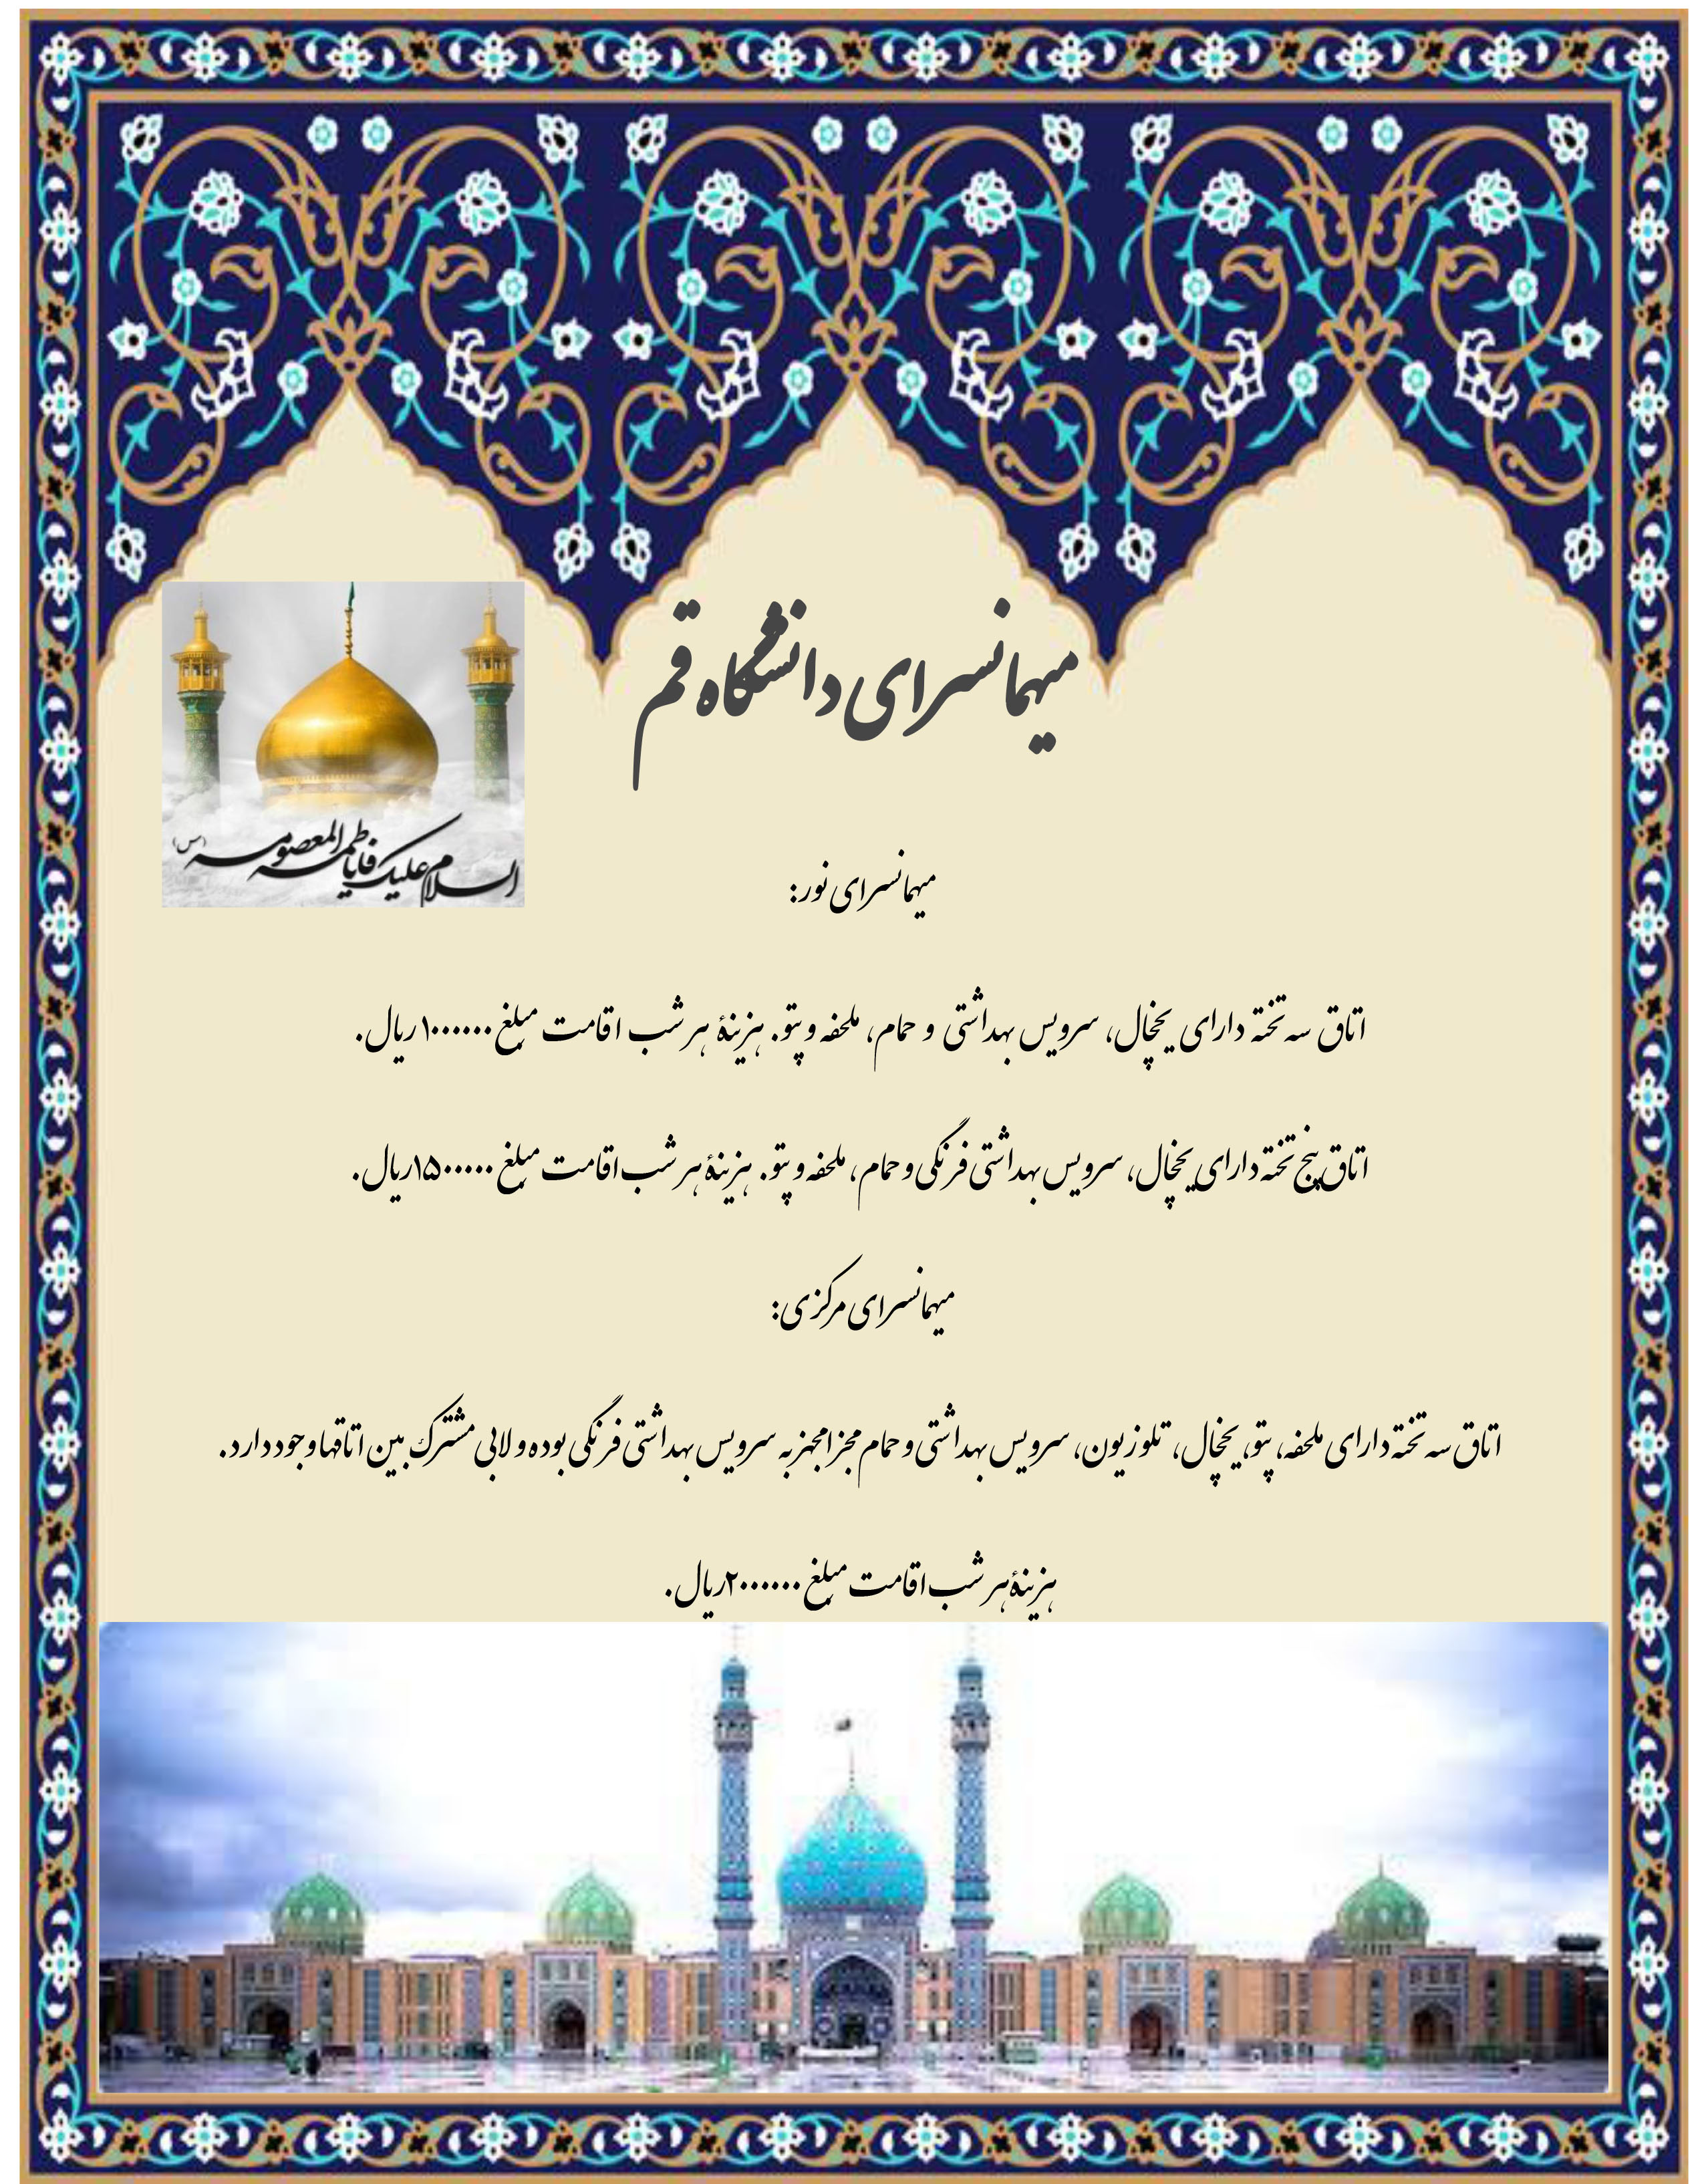 میهمانسرای دانشگاه قم
السلام علیک یا فاطمه المعصومه (س)
میهمانسرای نور:
اتاق سه تخته دارای یخچال، سرویس بهداشتی و حمام، ملحفه و پتو. هزینهٔ هر شب اقامت مبلغ ۱۰۰۰۰۰۰ ریال.
اتاق پنج تخته دارای یخچال، سرویس بهداشتی فرنگی و حمام، ملحفه و پتو. هزینهٔ هر شب اقامت مبلغ ۱۵۰۰۰۰۰ ریال.
میهمانسرای مرکزی:
اتاق سه تخته دارای ملحفه، پتو، یخچال، تلوزیون، سرویس بهداشتی و حمام مجزا مجهز به سرویس بهداشتی فرنگی بوده و لابی مشترک بین اتاقها وجود دارد.
هزینهٔ هر شب اقامت مبلغ ۲۰۰۰۰۰۰ ریال.